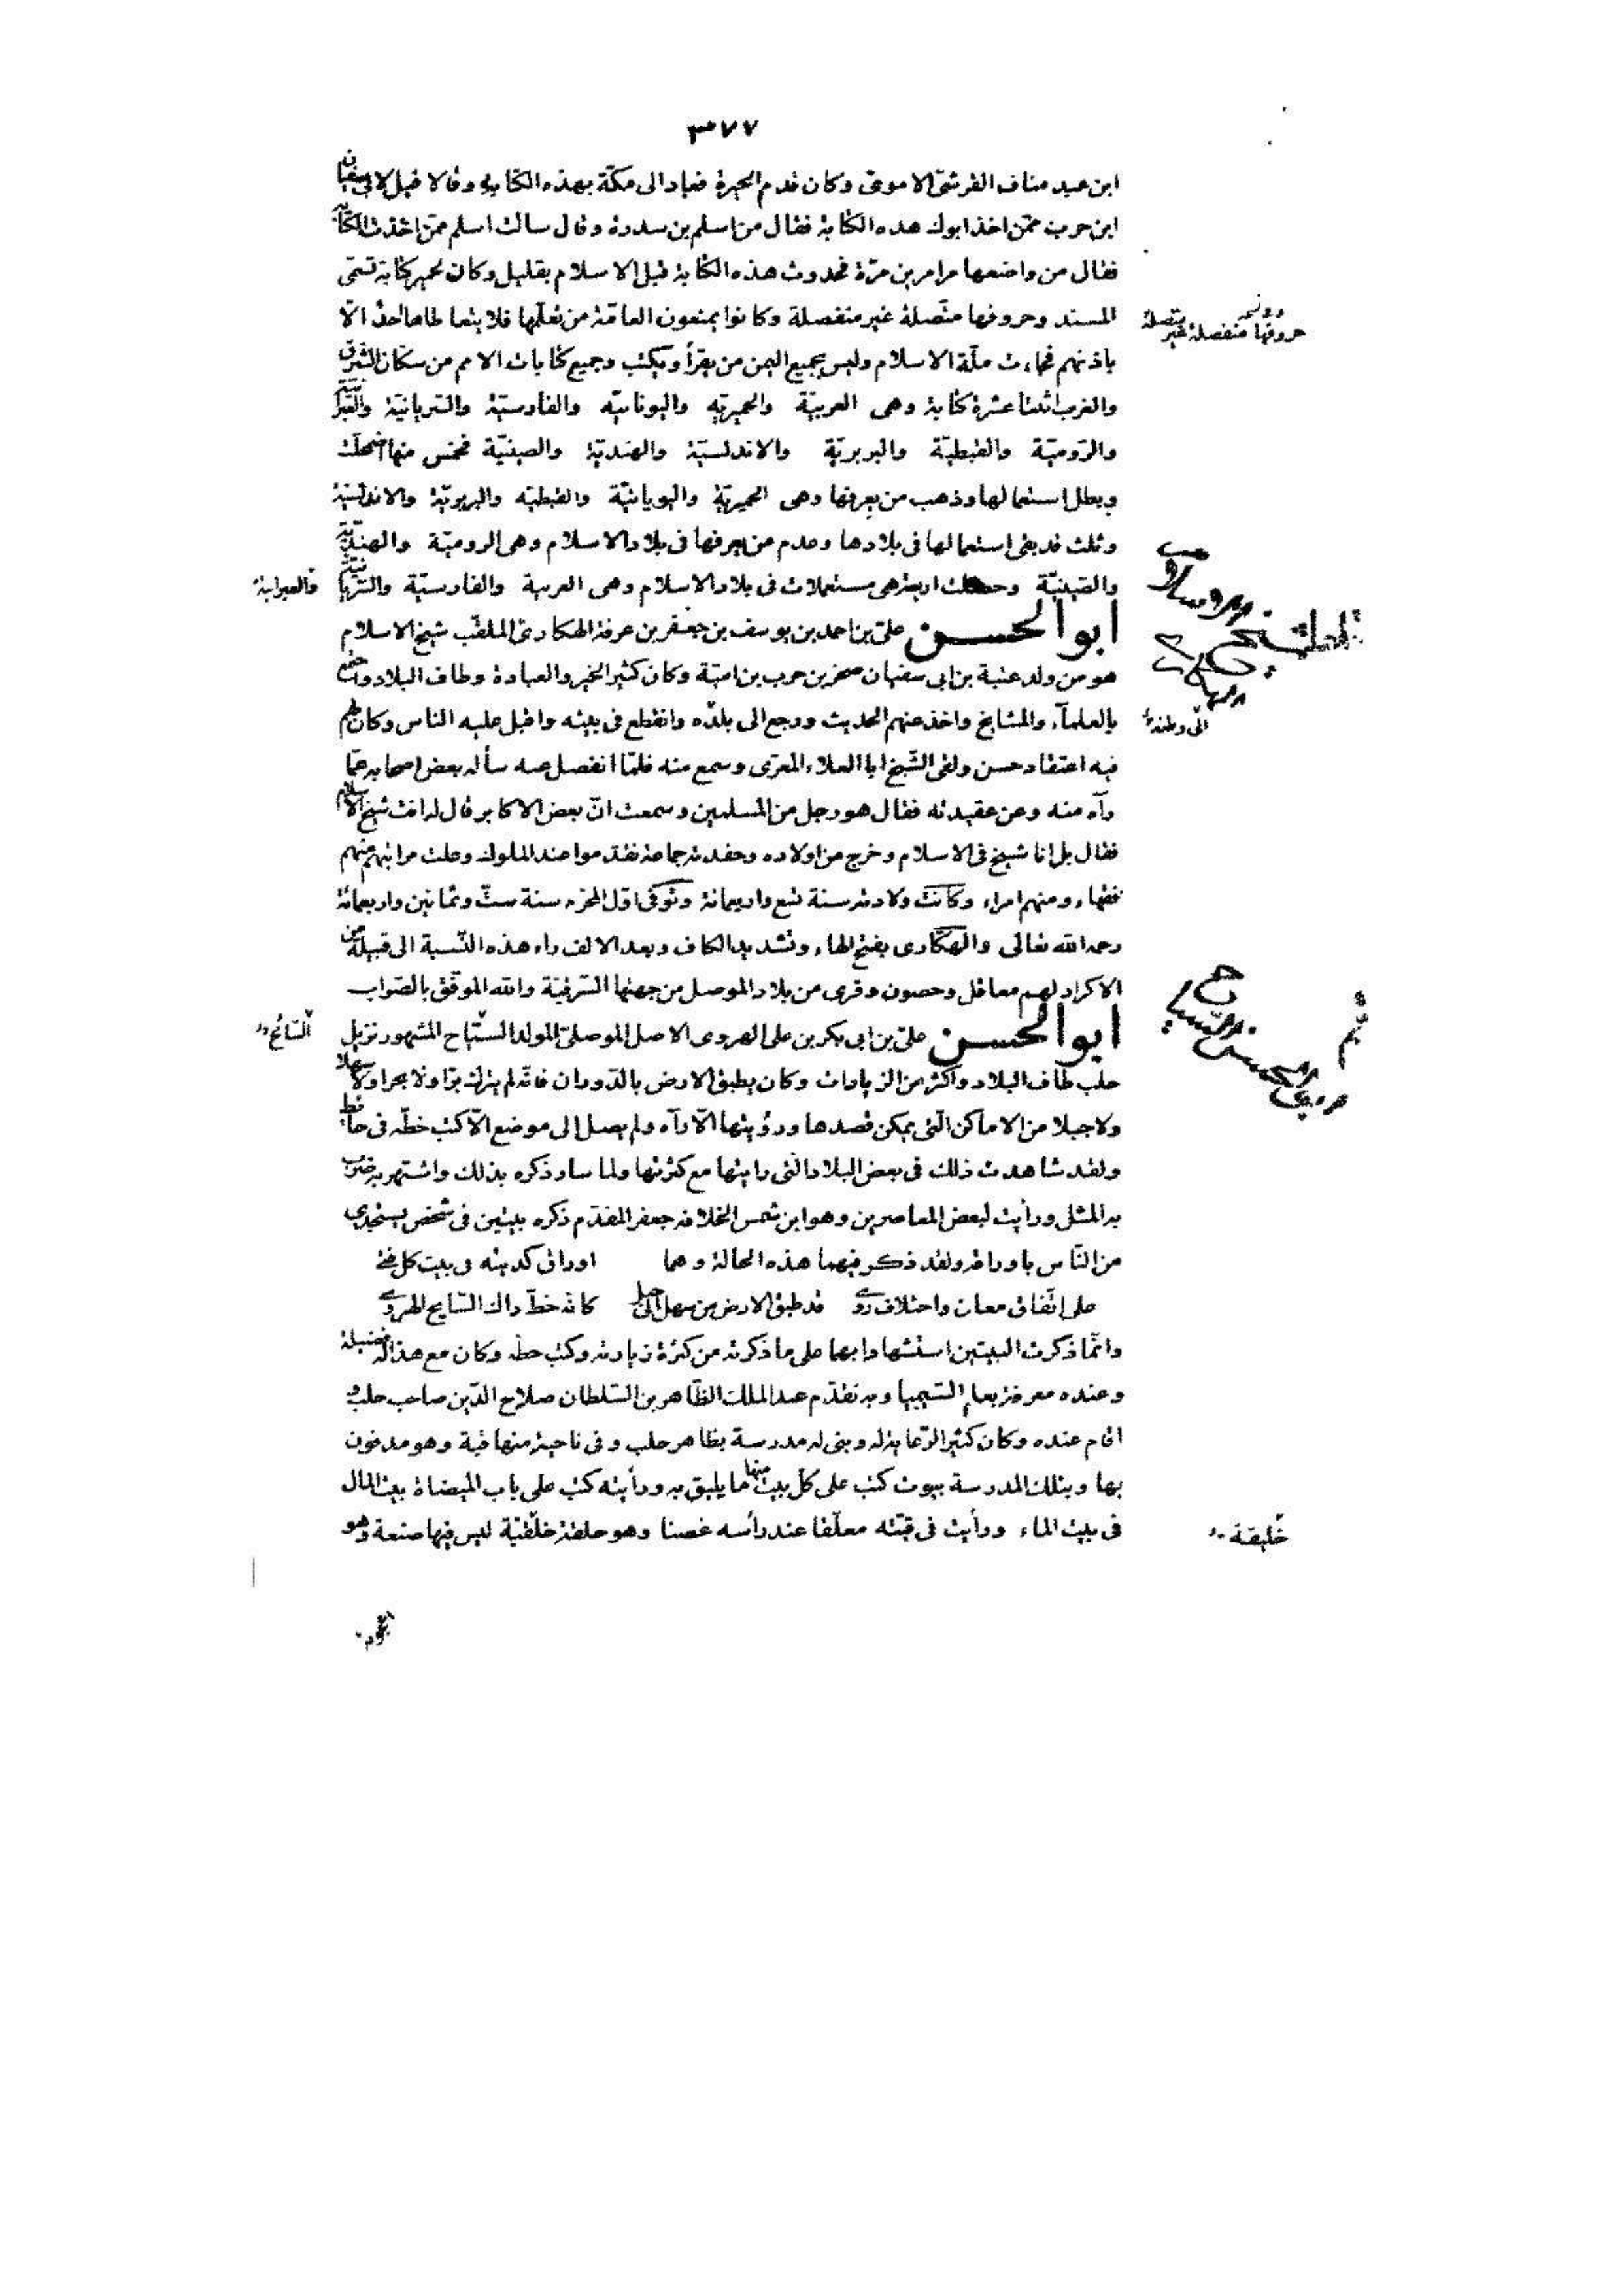 ٣٧٧
ابن عبد مناف القرشىّ الاموىّ وكان قدم الحيرة فعاد الى مكّة بهذه الكتابة وقالا قيل لابى سفيان
ابن حرب ممّن اخذ ابوك هذه الكتابة فقال من اسلم بن سدرة وقال سالت اسلم ممّن اخذت الكتابة
فقال من واضعها مرامر بن مرّة فحدوث هذه الكتابة قبل الاسلام بقليل وكان لحمير كتابة تسمّى
المسند وحروفها متّصلة غير منفصلة وكانوا يمنعون العامّة من تعلّمها فلا يتعاطاها احد الّا
حروفها منفصلة غير متصلة
باذنهم فجاءت ملّة الاسلام وليس بجميع اليمن من يقرأ ويكتب وجميع كتابات الامم من سكّان الشرق
والغرب اثنتا عشرة كتابة وهى العربيّة والحميريه واليونانيّه والفارسيّة والسّريانيّة والعبرانيّة
والرّوميّة والقبطيّة والبربريّة والاندلسيّة والهنديّة والصينيّة فخمس منها اضمحلّت
وبطل استعمالها وذهب من يعرفها وهى الحميريّة واليونانيّة والقبطيّه والبربريّة والاندلسيّة
وثلث قد بقى استعمالها فى بلادها وعدم من يعرفها فى بلاد الاسلام وهى الروميّة والهنديّة
والصّينيّة وحصلت اربعة هى مستعملات فى بلاد الاسلام وهى العربية والفارسيّة والسّريانيّة
والعبرانية
ابو الحسن علىّ بن احمد بن يوسف بن جعفر بن عرفة الهكارىّ الملقّب شيخ الاسلام
هو من ولد عتبة بن ابى سفيان صخر بن حرب بن اميّة وكان كثير الخير والعبادة وطاف البلاد واجتمع
بالعلمآء والمشايخ واخذ عنهم الحديث ورجع الى بلده وانقطع فى بيته واقبل عليه الناس وكان لهم
الى وطنه
فيه اعتقاد حسن ولقى الشّيخ ابا العلاء المعرّى وسمع منه فلمّا انفصل عنه سأله بعض اصحابه عمّا
رآه منه وعن عقيدته فقال هو رجل من المسلمين وسمعت انّ بعض الاكابر قال له انت شيخ الاسلام
فقال بل انا شيخ فى الاسلام وخرج من اولاده وحفدته جماعة تقدموا عند الملوك وعلت مراتبهم منهم
فقهاء ومنهم امراء وكانت ولادته سنة تسع واربعمائة وتوفى اوّل المحرّم سنة ستّ وثمانين واربعمائة
رحمه الله تعالى والهكّارى بفتح الهاء وتشديد الكاف وبعد الالف راء هذه النّسبة الى قبيلة من
الاكراد لهم معاقل وحصون وقرى من بلاد الموصل من جهتها الشّرقيّة والله الموفّق بالصّواب
ابو الحسن علىّ بن ابى بكر بن على الهروى الاصل الموصلىّ المولد السّيّاح المشهور نزيل
السّائح
حلب طاف البلاد واكثر من الزيارات وكان يطبق الارض بالدّوران فانّه لم يترك برّا ولا بحرا ولا سهلا
ولا جبلا من الاماكن الّتى يمكن قصدها ورؤيتها الّا رآه ولم يصل الى موضع الّا كتب خطّه فى حائط
ولقد شاهدت ذلك فى بعض البلاد الّتى رايتها مع كثرتها ولما سار ذكره بذلك واشتهر به ضرب
به المثل ورأيت لبعض المعاصرين وهو ابن شمس الخلافة جعفر المقدّم ذكره بيتين فى شخص يستجدى
من النّاس باوراقه ولقد ذكر فيهما هذه الحالة وهما اوراق كديته فى بيت كل فتى
على اتّفاق معان واختلاف روى قد طبق الارض من سهل الى جبل كانه خطّ ذاك السّايح الهروى
وانّما ذكرت البيتين استشهادا بهما على ما ذكرته من كثرة زيارته وكتب خطه وكان مع هذا له فضيلة
وعنده معرفة بعلم السّيميا وبه تقدّم عند الملك الظّاهر بن السّلطان صلاح الدّين صاحب حلب و
اقام عنده وكان كثير الرّعاية له وبنى له مدرسة بظاهر حلب وفى ناحية منها قبة وهو مدفون
بها وبتلك المدرسة بيوت كتب على كلّ بيت منها ما يليق به ورأيته كتب على باب الميضاة بيت المال
فى بيت الماء ورأيت فى قبّته معلّقا عند رأسه غصنا وهو حلقة خلقيّة ليس فيها صنعة وهو
خليقة